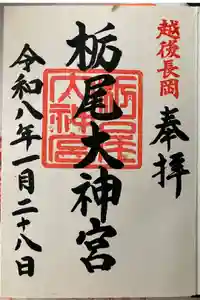 越後長岡
奉拝
栃尾大神宮
令和八年一月二十八日